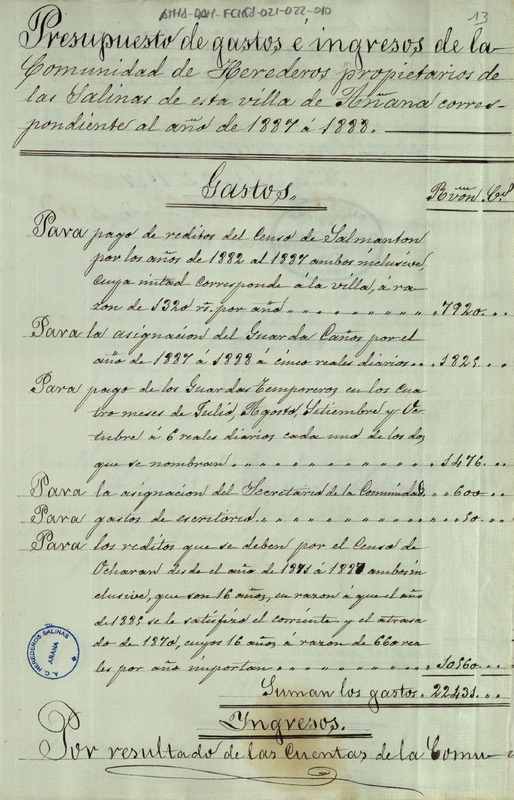 13
Presupuesto de gastos é ingresos de la
Comunidad de Herederos propietarios de
las Salinas de esta villa de Añana corres-
pondiente al año de 1887 á 1888.
Gastos.
Rvon. Cs.
Para pago de reditos del Censo de Salmanton
por los años de 1882 al 1887 ambos inclusive,
cuya mitad corresponde á la villa, á ra
zon de 1320 rs. por año 7920
Para la asignacion del Guarda Caños por el
año de 1887 á 1888 á cinco reales diarios 1825
Para pago de los Guardas Temporeros en los cua
tro meses de Julio, Agosto, Setiembre y Oc-
tubre á 6 reales diarios cada uno de los dos
que se nombran 1476
Para la asignacion del Secretario de la Comunidad 600
Para gastos de escritorio 50
Para los reditos que se deben por el Censo de
Ocharan desde el año de 1871 á 1886 ambos in
clusive, que son 16 años, en razon á que el año
de 1885 se le satisfizo el corriente y el atrasa
do de 1870, cuyos 16 años á razon de 660 rea
les por año importan 10560
Suman los gastos 22431
Ingresos.
Por resultado de las Cuentas de la Comu-
A.C. HEREDEROS SALINAS
AÑANA